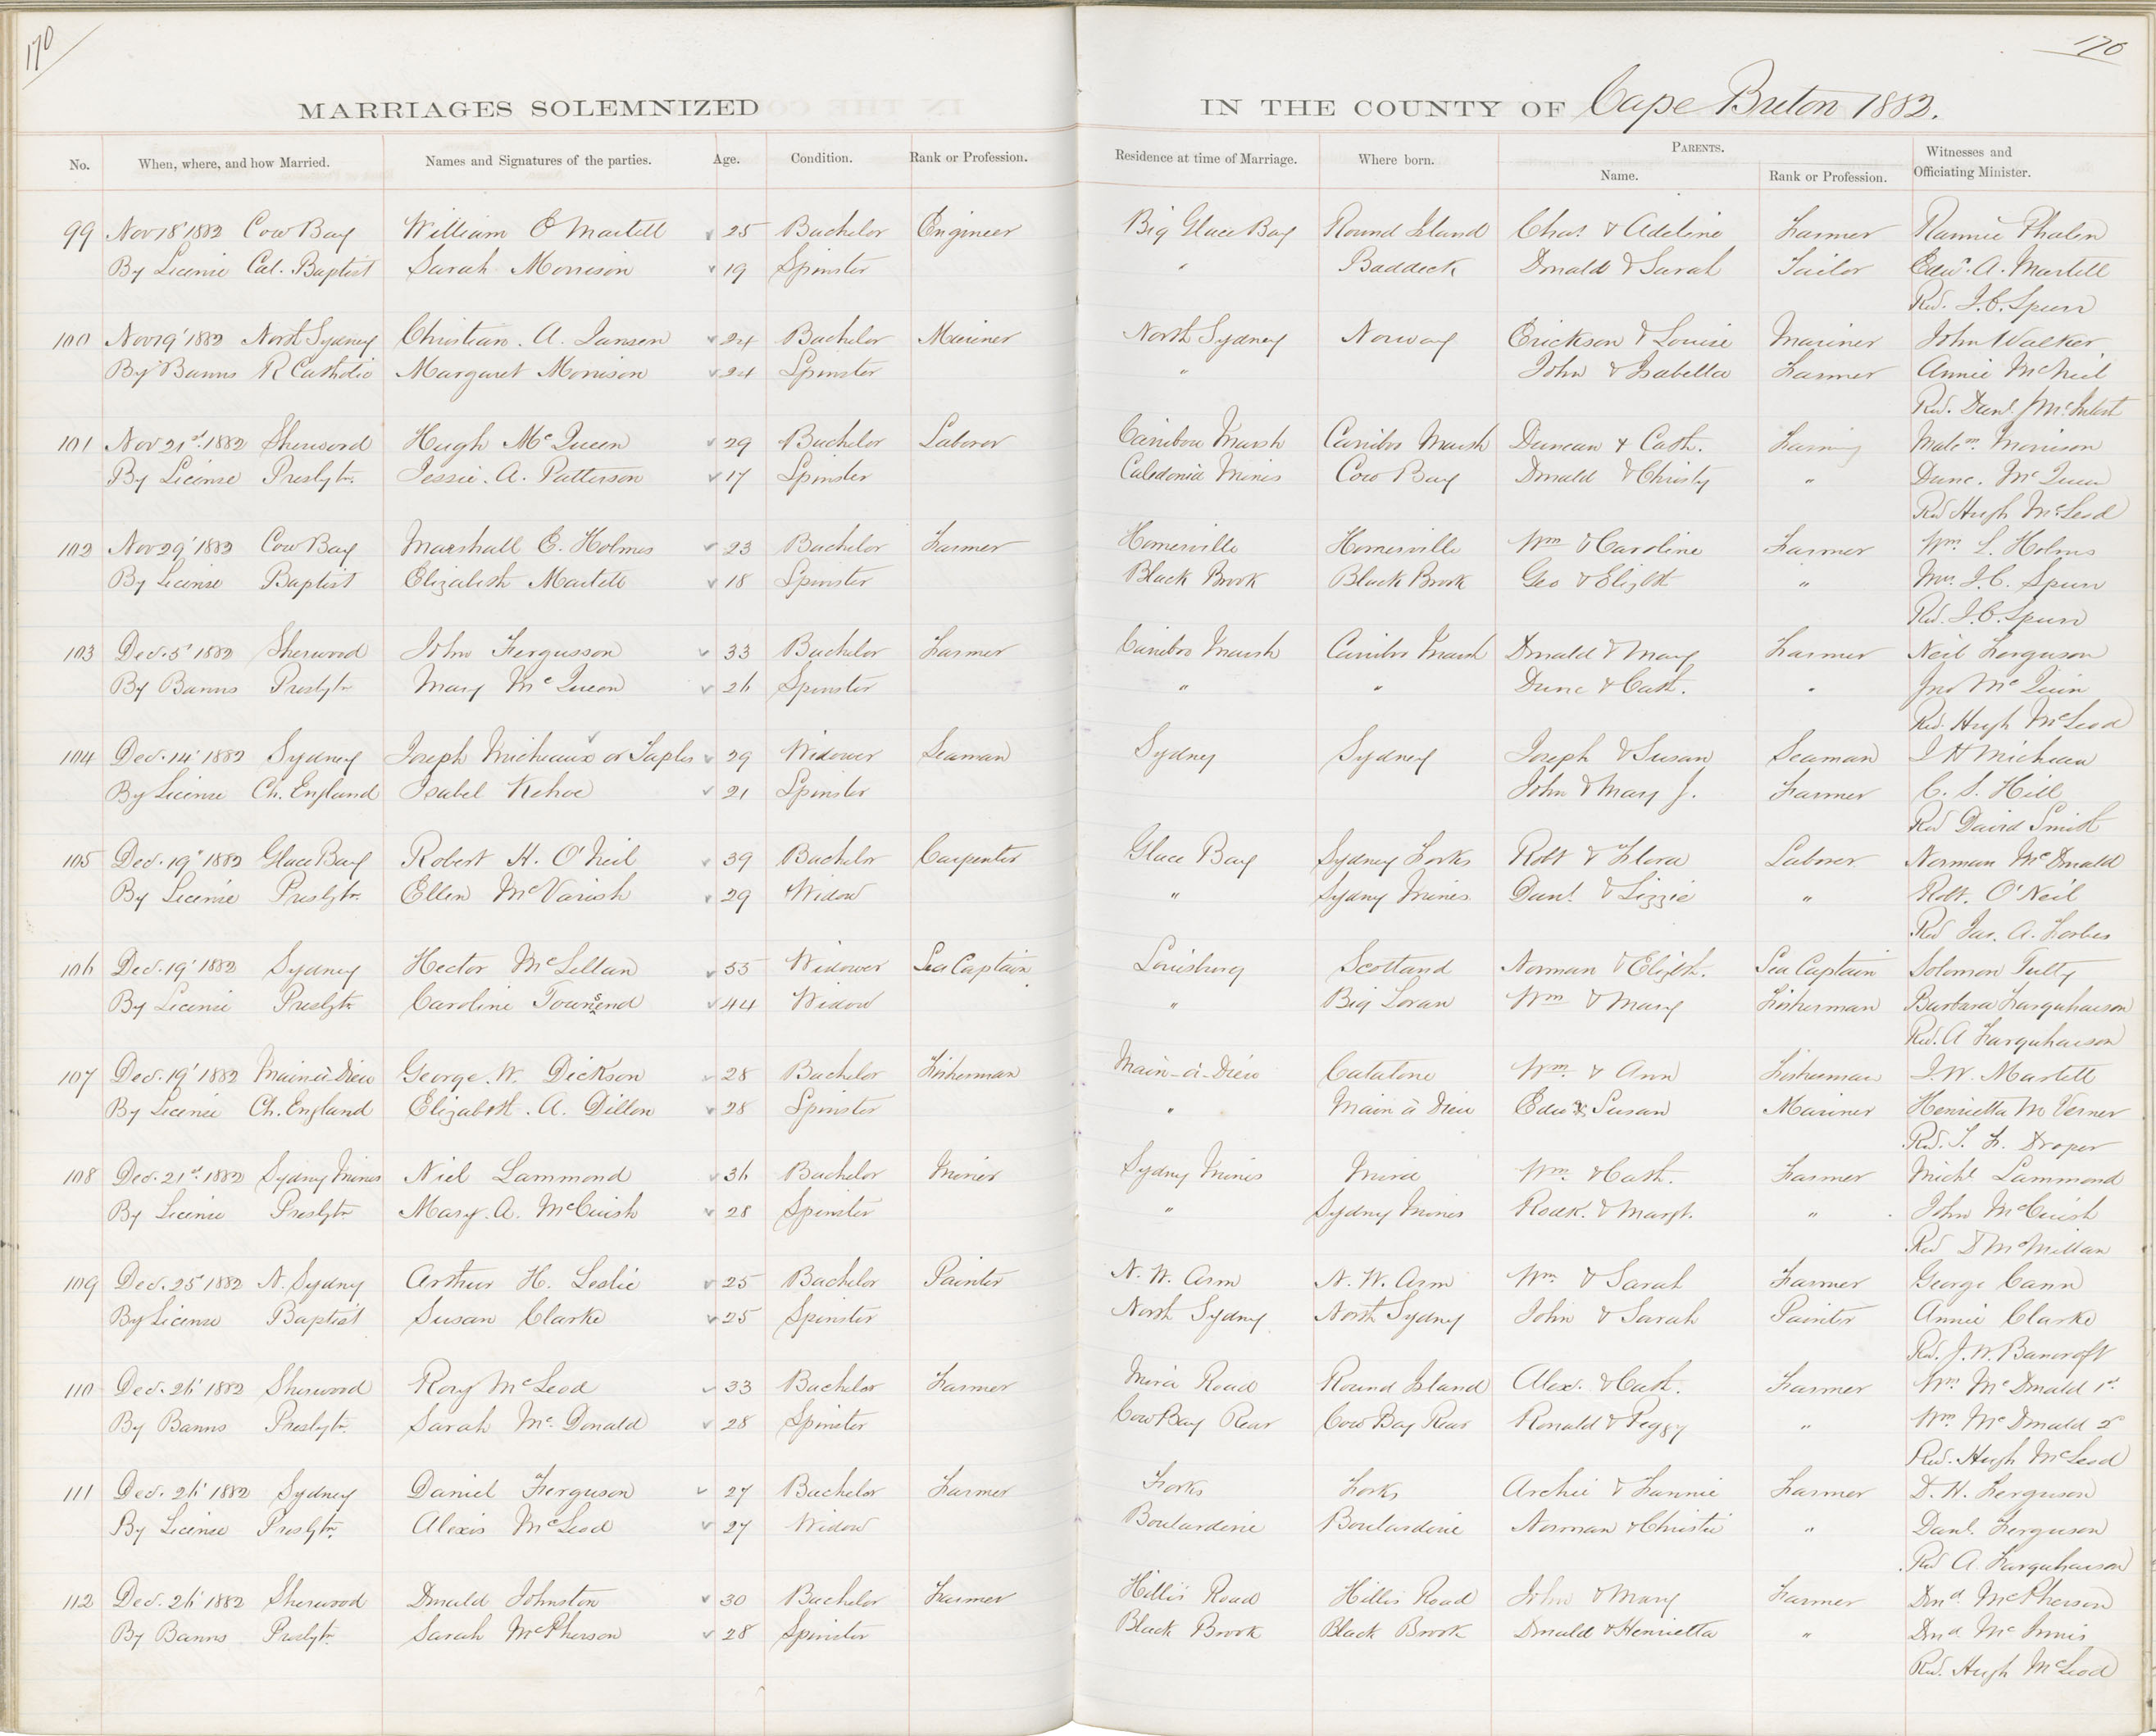 170
170
MARRIAGES SOLEMNIZED IN THE COUNTY OF Cape Breton 1882.
No. When, where, and how Married. Names and Signatures of the parties. Age. Condition. Rank or Profession. Residence at time of Marriage. Where born. PARENTS. Witnesses and
Name. Rank or Profession. Officiating Minister.
99 Nov 18' 1882 Cow Bay William O Martell 25 Bachelor Engineer Big Glace Bay Round Island Chas. & Adeline Farmer Rannie Phalen
By License Cal. Baptist Sarah Morrison 19 Spinster " Baddeck Donald & Sarah Tailor Edw. A. Martell
Rev. J.C. Spurr
100 Nov 19' 1882 North Sydney Christian. A. Jansen 24 Bachelor Mariner North Sydney Norway Erickson & Louise Mariner John Walker
By Banns R Catholic Margaret Morrison 24 Spinster " John & Isabella Farmer Annie McNeil
Rev. Danl. J McIntosh
101 Nov 21st. 1882 Sherwood Hugh McQueen 29 Bachelor Laborer Caribou Marsh Caribou Marsh Duncan & Cath. Farming Malcm. Morrison
By License Presbytn. Jessie. A. Patterson 17 Spinster Caledonia Mines Cow Bay Donald & Christy " Dunc. McQueen
Rev Hugh McLeod
102 Nov 29' 1882 Cow Bay Marshall E. Holmes 23 Bachelor Farmer Homerville Homerville Wm & Caroline Farmer Wm. L. Holms
By License Baptist Elizabeth Martell 18 Spinster Black Brook Black Brook Geo & Elizbth " Mrs. J.C. Spurr
Rev. J.C. Spurr
103 Dec. 5' 1882 Sherwood John Fergusson 33 Bachelor Farmer Caribou Marsh Caribou Marsh Donald & Mary Farmer Neil Ferguson
By Banns Presbytn Mary McQueen 26 Spinster " " Dunc & Cath. " Jno McQuin
Rev. Hugh McLeod
104 Dec. 14' 1882 Sydney Joseph Micheaux or Taples 29 Widower Seaman Sydney Sydney Joseph & Susan Seaman J H Micheau
By License Ch. England Isabel Kehoe 21 Spinster John & Mary J. Farmer C. S. Hill
Rev David Smith
105 Dec. 19' 1882 Glace Bay Robert H. O'Neil 39 Bachelor Carpenter Glace Bay Sydney Forks Robt & Flora Laborer Norman McDonald
By License Presbytn. Ellen McVarish 29 Widow " Sydney Mines Danl. & Lizzie " Robt. O'Neil
Rev Jas. A. Forbes
106 Dec. 19' 1882 Sydney Hector McLellan 55 Widower Sea Captain Louisburg Scotland Norman & Elizth. Sea Captain Solomon Tutty
By License Presbytn Caroline Townsend 44 Widow " Big Loran Wm & Mary Fisherman Barbara Farquharson
Rev. A Farquharson
107 Dec. 19' 1882 Main à Dieu George. W. Dickson 28 Bachelor Fisherman Main-à-Dieu Catalone Wm. & Ann Fisherman J. W. Martell
By License Ch. England Elizabeth. A. Dillon 28 Spinster " Main à Dieu Edw & Susan Mariner Henrietta M Verner
Rev. T. F. Draper
108 Dec. 21st. 1882 Sydney Mines Niel Lammond 36 Bachelor Miner Sydney Mines Mira Wm. & Cath. Farmer Michl Lammond
By License Presbytn Mary. A. McCuish 28 Spinster " Sydney Mines Rodk. & Margt. " John McCuish
Rev D McMillan
109 Dec. 25' 1882 N. Sydney Arthur H. Leslie 25 Bachelor Painter N. W. Arm N. W. Arm Wm. & Sarah Farmer George Cann
By License Baptist Susan Clarke 25 Spinster North Sydney North Sydney John & Sarah Painter Annie Clarke
Rev. J. W. Bancroft
110 Dec. 26' 1882 Sherwood Rory McLeod 33 Bachelor Farmer Mira Road Round Island Alex. & Cath. Farmer Wm. McDonald 1st
By Banns Presbytn. Sarah Mc Donald 28 Spinster Cow Bay Rear Cow Bay Rear Ronald & Peggy " Wm. McDonald 2d
Rev. Hugh McLeod
111 Dec. 26' 1882 Sydney Daniel Ferguson 27 Bachelor Farmer Forks Forks Archie & Fannie Farmer D. H. Ferguson
By License Presbytn. Alexis McLeod 27 Widow Boulardrie Boulardrie Norman & Christie " Danl. Ferguson
Rev A. Farquharson
112 Dec. 26' 1882 Sherwood Donald Johnston 30 Bachelor Farmer Hillis Road Hillis Road John & Mary Farmer Dnd. McPherson
By Banns Presbytn. Sarah McPherson 28 Spinster Black Brook Black Brook Donald & Henrietta " Dnd McInnis
Rev. Hugh McLeod